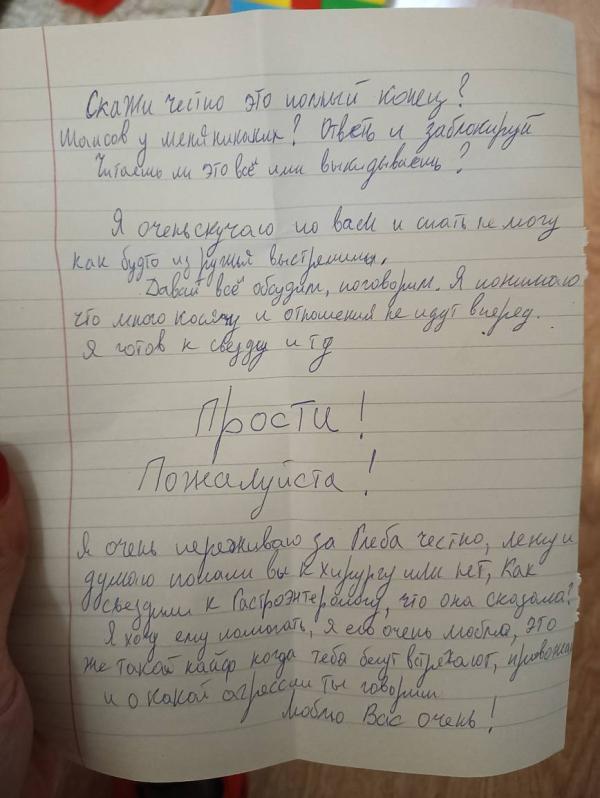 Скажи честно это полный конец?
Шансов у меня никаких? Ответь и заблокируй
Читаешь ли это всё или выкидываешь?
Я очень скучаю по вам и спать не могу
как будто из ружья выстрелили.
Давай всё обсудим, поговорим. Я понимаю
что много косячу и отношения не идут вперед.
Я готов к съезду и тд
Прости!
Пожалуйста!
Я очень переживаю за Глеба честно, лежу и
думаю попали вы к хирургу или нет, как
съездили к Гастроэнтерологу, что она сказала?
Я хочу ему помогать, я его очень люблю, это
же такой кайф когда тебя бегут встречают,
и о какой агрессии ты говоришь
Люблю Вас очень!